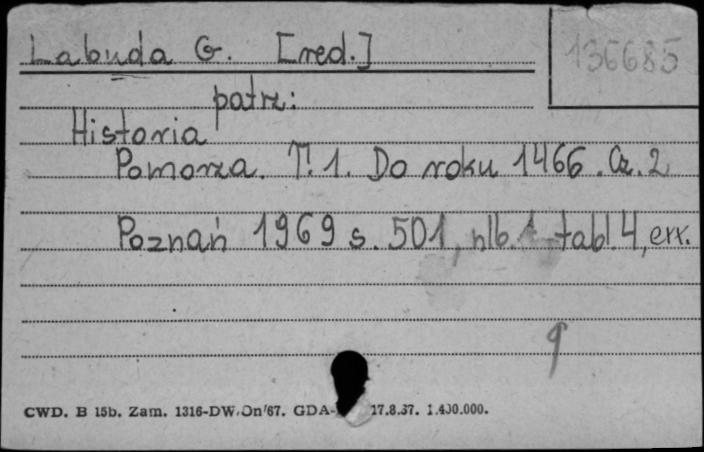 Labuda G. [red.]
136685
patrz:
Historia
Pomorza. T. 1. Do roku 1466. Cz. 2
Poznań 1969 s. 501, nlb. 1 tabl. 4, err.
CWD. B 15b. Zam. 1316-DW/Dn/67. GDA- 17.8.67. 1.400.000.